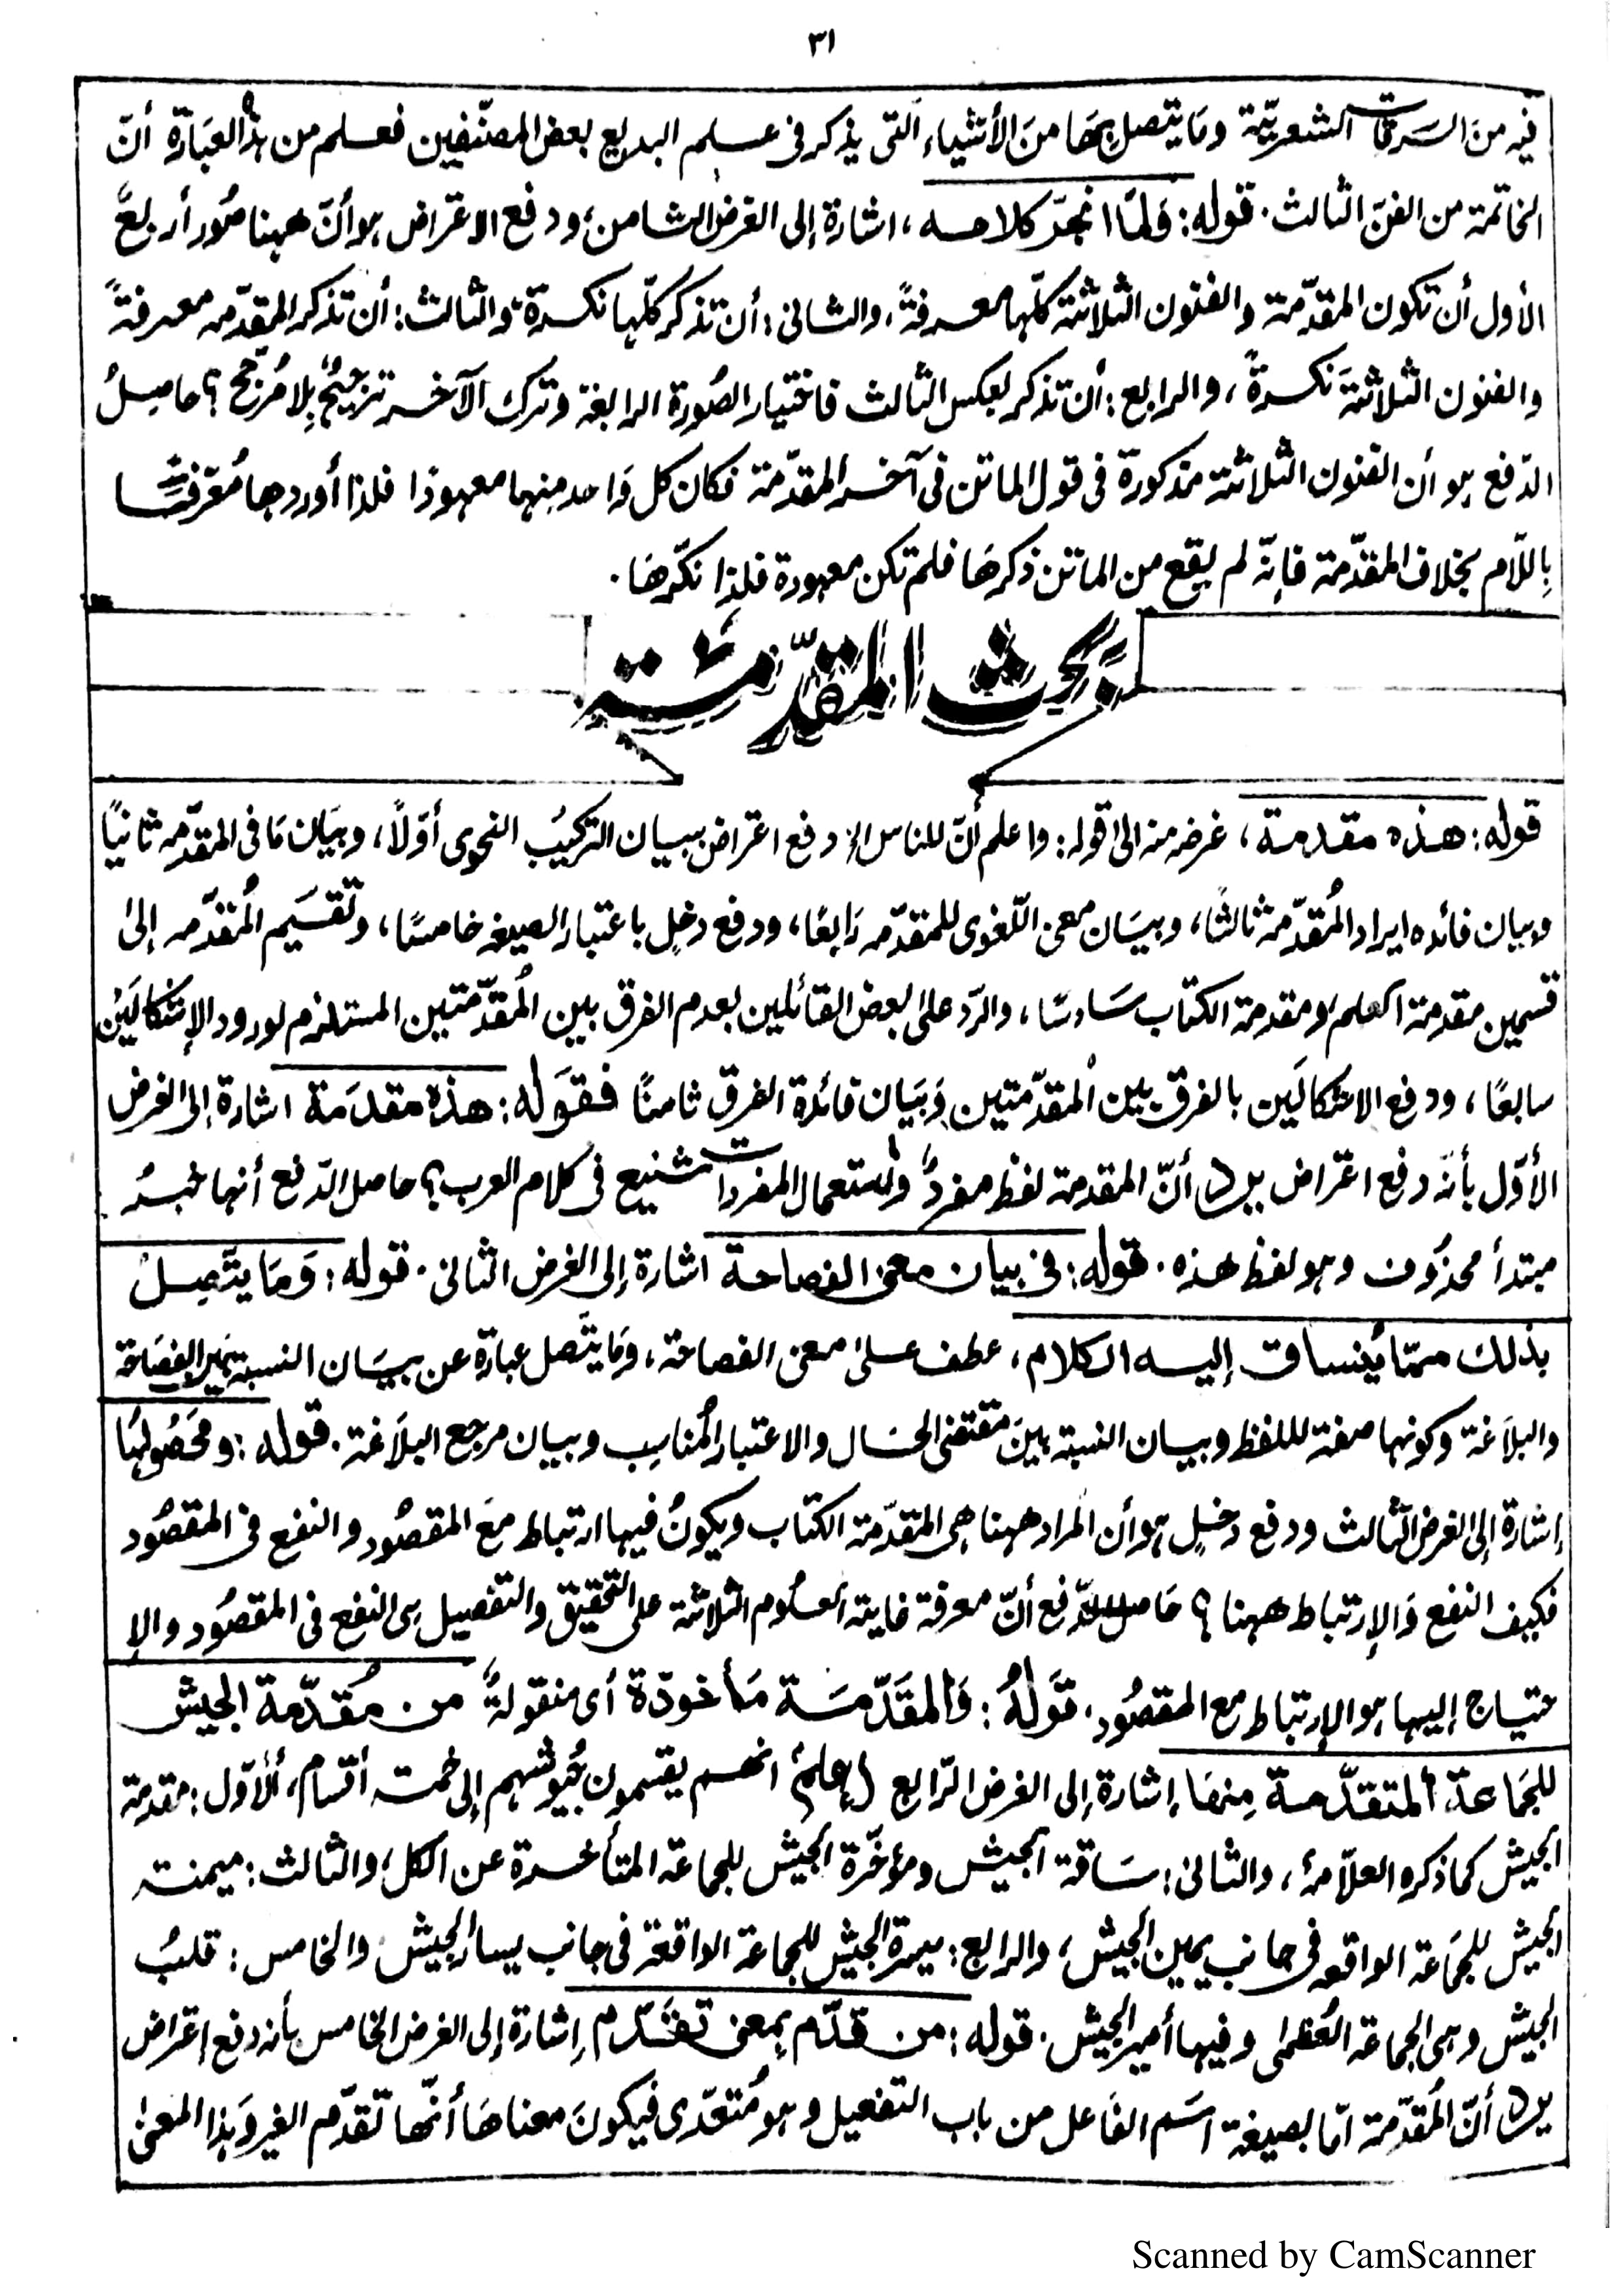 ٣١
فيه من السرقات الشعريّة وما يتصل بها من الأشياء التى يذكر فى علم البديع بعض المصنّفين فعلم من هذه العبارة أنّ
الخاتمة من الفنّ الثالث. قوله: ولمّا انجرّ كلامه، اشارة إلى الغرض الثامن، ودفع الاعتراض هو أنّ ههنا صُور أربعً
الأول أن تكون المقدّمة والفنون الثلاثة كلّها معرفةً، والثانى: أن تذكر كلّها نكرةً، والثالث: أن تذكر المقدّمه معرفةً
والفنون الثلاثة نكرةً، والرابع: أن تذكر بعكس الثالث فاختيار الصُورة الرابعة وترك الآخر ترجيحٌ بِلا مُرجّح؟ حاصلُ
الدّفع هو أن الفنون الثلاثة مذكورة فى قول الماتن فى آخر المقدّمة فكان كل وَاحد منها معهودًا فلذا أوردها مُعرّفتًا
بِاللّام بخلاف المقدّمة فإنّه لم يقع من الماتن ذكرهَا فلم تكن معهودة فلذا نكّرهَا.
بحث المقدّمة
قوله: هذه مقدمة، غرضه منه الى قوله: واعلم أنّ للناس الإ دفع اعتراض ببيان التركيب النحوى أوّلاً، وبيَان مَا فى المقدّمه ثانيًا
وبيان فائده ايراد المُقدّمة ثالثًا، وبيَان معنى اللّغوى للمقدّمه رَابعًا، ودفع دخلٍ باعتبار الصيغه خامسًا، وتقسَيم المُقدّمه إلى
قسمين مقدمة العلم ومقدمة الكتاب سَادسًا، والرّد علىٰ بعض القائلين بعدم الفرق بين المُقدّمتين المستلزم لورود الإشكالَيْن
سابعًا، ودفع الاشكالَين بالفرق بين المقدّمتين وَبيَان فائدة الفرق ثامنًا فقوَله: هذه مقدَمة اشارة إلى الغرض
الأوّل بأنّه دفع اعتراض يرد أنّ المقدمة لفظ مفردٌ واستعمال المفردات شنيع فى كلام العرب؟ حاصل الدّفع أنها خبرُ
مبتدأ محذُوف وهو لفظ هذه. قوله: فى بيان معنى الفصاحة اشارة إلى الغرض الثانى. قوله: وَمَا يتّصِلُ
بذلك ممّا يُنساق إليه الكلام، عطف علىٰ معنى الفصاحة، ومَا يتّصل عبارة عن بيَان النسبة بين الفصَاحة
والبلاَغة وكونها صفة لللفظ وبيان النسبة بينَ مقتضى الحَال والاعتبار المُناسِب وبيان مرجع البلاَغة. قوله: ومحَصُولهَا
إشارة إلى الغرض الثالث ودفع دخلٍ هو أن المراد ههنا هى المقدّمة الكتاب ويكونُ فيها ارتباط مَع المقصُود والنفع فى المقصُود
فكيف النفع وَالإرتباط ههنا؟ حَاصل الدّفع أنّ معرفة غاية العلُوم الثلاثة على التحقيق والتفصيل هى النفع فى المقصُود والإ
حتياج إليها هو الإرتباط مع المقصُود. قَولهُ: وَالمقَدّمَة مَأخوذة أى منقولةً من مُقدّمة الجيش
للجَماعة المتقدّمة مِنهَا إشارة إلى الغرض الرّابع (إعلم) انهم يقسمون جُيوشهم إلى خمت أقسام، الأوّل: مقدمة
الجيش كما ذكره العلاّمة، والثانى: سَاقة الجيش ومؤخّرة الجيش للجماعة المتأخرة عن الكل، والثالث: ميمنة
الجيش للجَماعة الواقعه فى جانب يمين الجيش، والرابع: ميسرة الجيش للجماعة الواقعة فى جانب يسار الجيش والخامس: قلبُ
الجيش وهى الجماعة العُظمىٰ وفيها أمير الجيش. قوله: من قدّم بمعنى تقدّم إشارة إلى الغرض الخامس بأنه دفع إعتراض
يرد أنّ المُقدّمة امّا بصيغة اسَم الفَاعل من باب التفعيل وهو مُتعّدى فيكونَ معناهَا أنّها تُقدّم الغير وَهذا المعنىٰ
Scanned by CamScanner